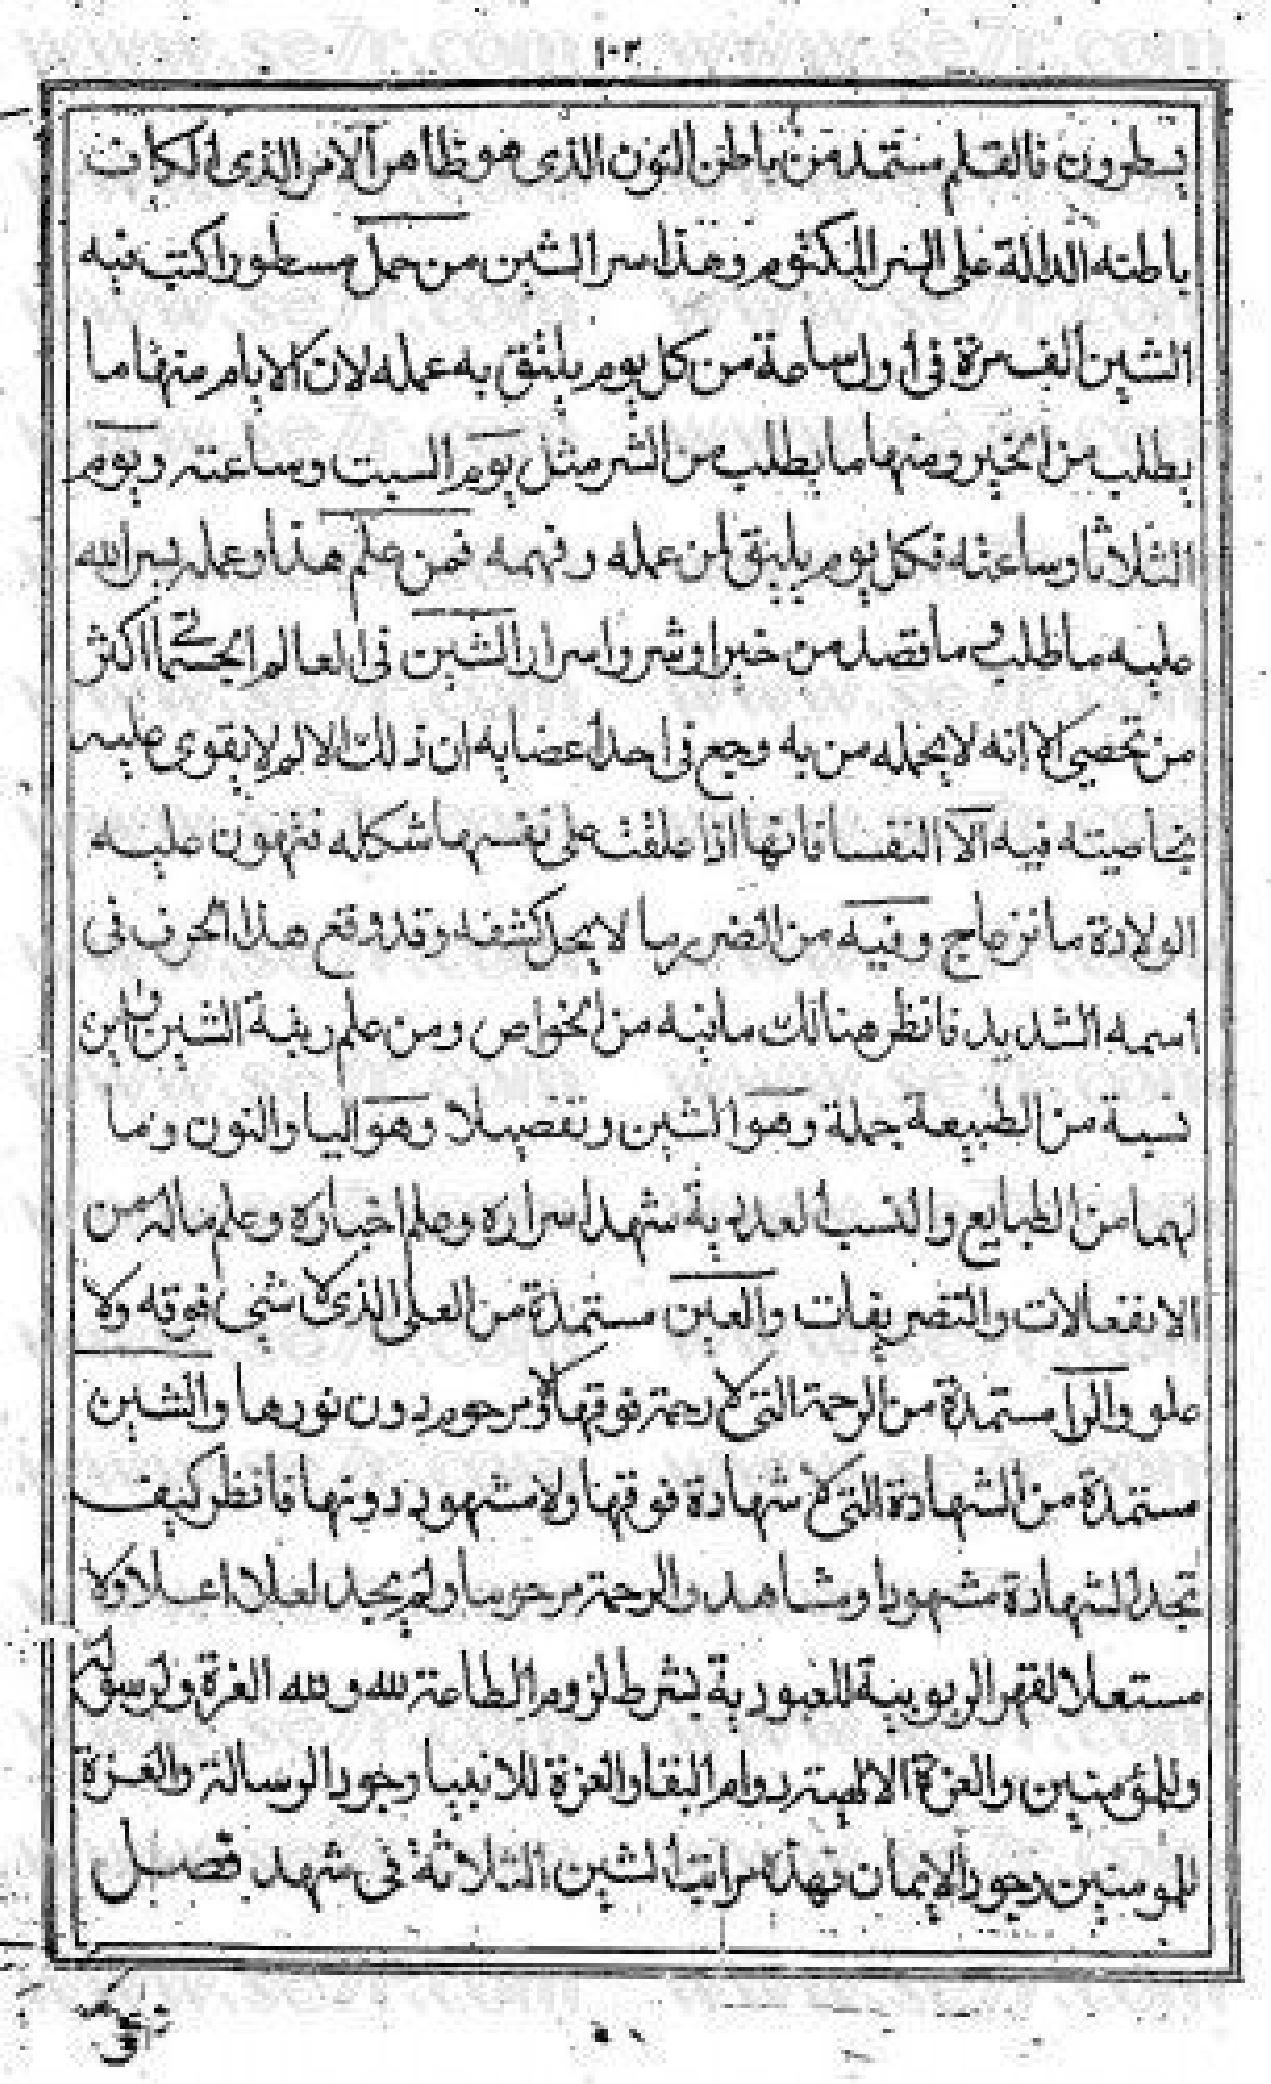 ١٠٢
يسطرون فالقلم مستمد من باطن النون الذى هو ظاهر الامر الذى الكاف
باطنه الدالة على السر المكتوم وهذا سر الشين من حمل مسطورا كتب فيه
الشين الف مرة فى اول ساعة من كل يوم يليق به عمله لان الايام منها ما
يطلب من الخير ومنها ما يطلب من الشر مثل يوم السبت وساعته ويوم
الثلاثا وساعته فكل يوم يليق لمن عمله وفهمه فمن علم هذا وعمله يسر الله
عليه ما طلب ما قصد من خير او شر واسرار الشين فى العالم الجسمانى اكثر
من تحصى الا انه لا يحمله من به وجع فى احد اعضايه ان ذلك الالم لا يقوى عليه
بخاصيته فيه الا النفسا فانها اذا علقت على نفسها شكله فتهون عليه
الولادة ما نزعاج وفيه من الضرر ما لا يحل كشفه وقد وقع هذا الحرف فى
اسمه الشديد فانظر هنالك ما فيه من الخواص ومن علم ريفة الشين من اين
نسبة من الطبيعة جملة وهو الشين وتفصيلا وهو اليا والنون وما
لهما من الطبايع والنسب العددية شهد اسراره وعلم اخباره وعلم ماله من
الانفعالات والتصريفات والعين مستمدة من العلى الذى لا شئ فوقه ولا
علو والرا مستمدة من الرحمة التى لا رحمة فوقها ولا مرحوم دون نورها والشين
مستمدة من الشهادة التى لا شهادة فوقها ولا مشهود دونها فانظر كيف
تجد الشهادة مشهودا وشاهد والرحمة مرحوما ولم يجد لعلا اعلا ولا
مستعلا لقهر الربوبية للعبودية بشرط لزوم الطاعة لله ولله العزة ولرسوله
وللمؤمنين والعزة الالهية دوام البقا والعزة للانبيا وجود الرسالة والعزة
للمومنين وجود الايمان فهذه مراتب الشين الثلاثة فى شهد فصل